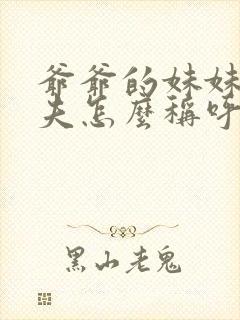 爺爺的妹妹
夫怎麼稱呼
黑山老鬼